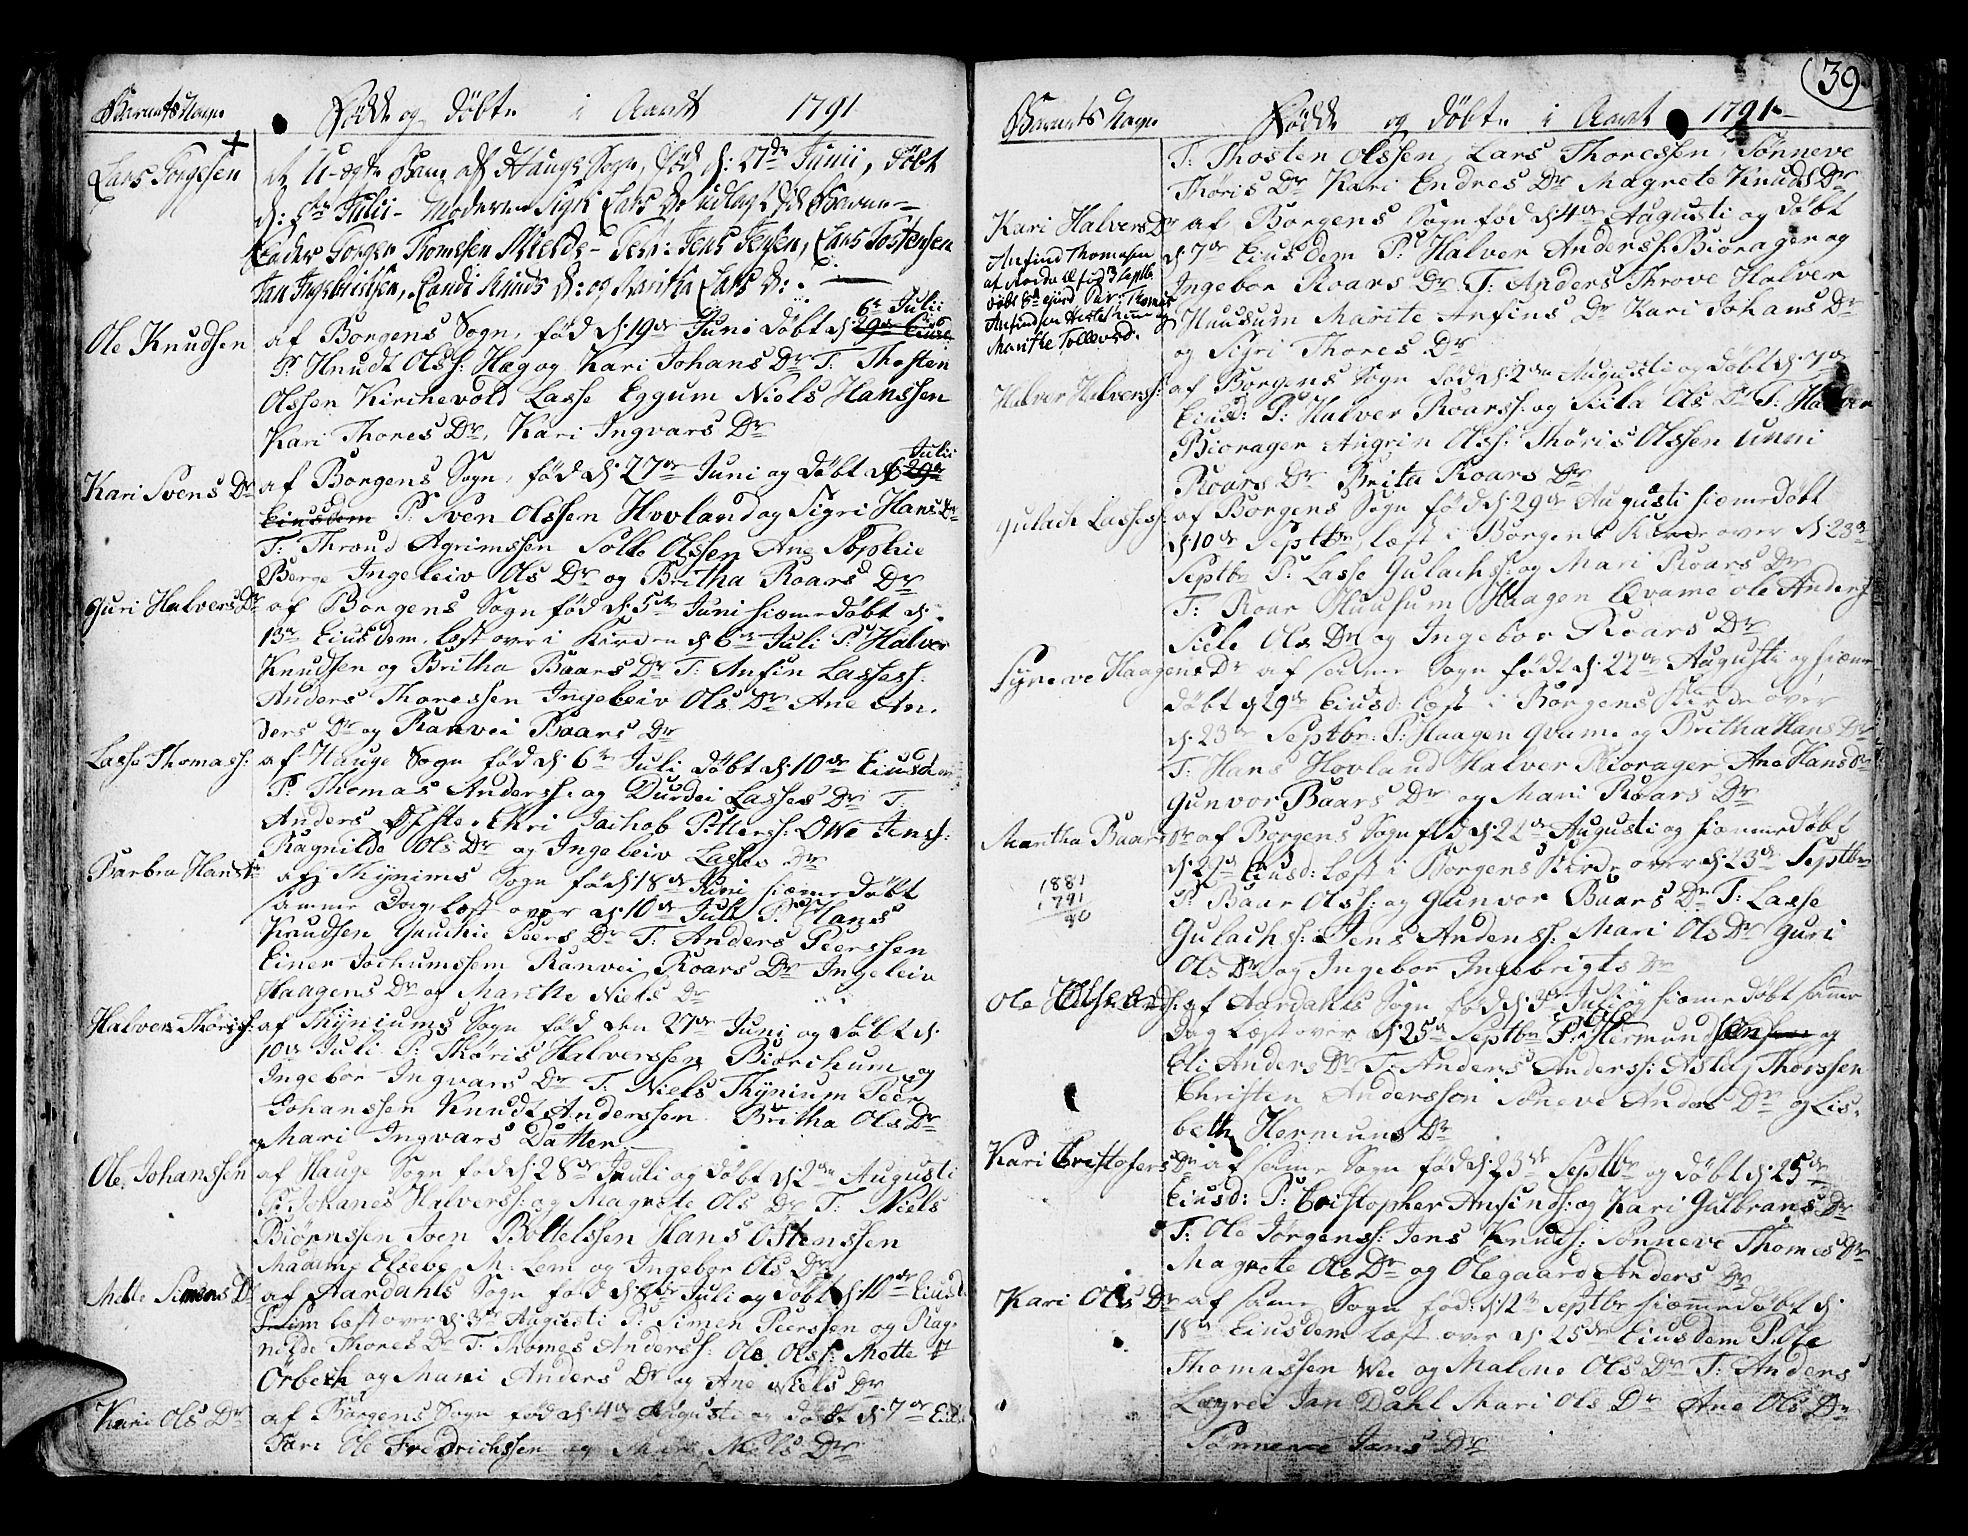 Barnets Nagn
Fødde og Døbte i Aaret 1791
Lars Gorgesen
et U-ægte Barn af Hougs Sogn, fød d: 27de Junii, døbt
d: Julii - Moderen Sigri Lars D: udlagde til Barne-
Fader Gorger Thomesen Mielde - Test: Jens Jensen, Lars Tostensen
Jan Ingebrigtsen, Randi Knuds D: og Maritha Lars D:
Ole Knudsen
af Borgens Sogn, fød d: 19de Juni døbt d: 29de Eiusd 6te Julii
P. Knudt Olss: Hæg og Kari Johans Dr T: Thosten
Olssen Kirchevold Lasse Eggum Niels Hanssen
Kari Thores Dr, Kari Ingvars Dr
Kari Svens Dr
af Borgens Sogn, fød d: 27de Juni og døbt d 6 29de Julii
Eiusdem P: Sven Olssen Hovland og Sigri Hans Dr
T: Thrond Agrimssen Solle Olssen Ane Sophie
Berge Ingeleiv Ols Dr og Britha Roars Dr
Guri Halvers Dr
af Borgens Sogn fød d: 5te Juni hiemedøbt d:
13de Eiusdem, læst over i Kirchen d 6te Juli P: Halver
Knudsen og Britha Baars Dr T: Anfin Lasses:
Anders Thoressen Ingeleiv Ols Dr Ane An-
ders Dr og Ranvei Baars Dr
Lasse Thomass:
af Hauge Sogn fød d: 6te Juli døbt d: 10de Eiusdem
P: Thomas Anderss: og Durdei Lasses Dr T:
Anders Øfste Ekri Jachob Pitterss: Owe Jenss:
Ragnilde Ols Dr og Ingeleiv Lasses Dr
Barbra Hans Dr
af Thynims Sogn fød 18de Juni hiemedøbt
samme Dag, læst over d: 10de Juli P: Hans
Knudsen Gauchie Peers Dr T: Anders Peerssen
Einer Jochumssem Ranvei Roars Dr Ingeleiv
Haagens Dr og Marthe Niels Dr
Halver Thøriss:
af Thyniums Sogn fød den 27de Juni og døbt d:
10de Juli P: Thøris Halverssen Biørchum og
Ingebor Ingvars Dr T: Niels Thynium Peer
Johanssen Knudt Anderssen Britha Ols Dr
og Mari Ingvars Datter
Ole Johanssen
af Hauge Sogn fød d: 28de Juli og døbt d 2den Augusti
P: Johanes Halverss: og Magrete Ols Dr T: Niels
Biørnssen Joen Bottelssen Hans Ostenssen
Madame Elsebe M. Lem og Ingebor Ols Dr
Mette Simens Dr
af Aardahls Sogn fød d: Juli og døbt d: 10de Eiusd
P: Sim læst over d: 3de Augusti P: Simen Peerssen og Rag-
nilde Thores Dr T: Thomes Anderss: Ole Olss: Mette
Orbech og Mari Anders Dr og Ane Niels Dr
Kari Ols Dr
af Borgens Sogn fød d: 4de Augusti og døbt d: 7de Eiusd
Pare Ole Fridrichssen og Mari Niels Dr
39
Barnets Nagn
Fødde og døbte i Aaret 1791
T: Thosten Olssen, Lars Thoressen, Sønneve
Thøris Dr Kari Endres Dr Magrete Knuds Dr
Kari Halvers Dr
af Borgens Sogn fød d 4de Augusti og døbt
d: 7de Eiusdem P: Halver Anderss: Biorager og
Ingebor Roars Dr T: Anders Throve Halver
Huusum Marite Anfins Dr Kari Johans Dr
og Sigri Thores Dr
Anfind Thomesen
af Aardal fød 3 Septb
døbt Par: Thomas
Anfindsen og
Marthe Tollevsd.
Halver Halverss:
af Borgens Sogn fød d: 2den Augusti og døbt d: 7de
Eiusd: P: Halver Roarss: og Siela Ols Dr T: Halver
Biorager Angrin Olss: Thøris Olssen Unni
Roars Dr Brita Roars Dr
Gulach Lasses:
af Borgens Sogn fød d: 29de Augusti hiemedøbt
d: 10de Septbr, læst i Borgens Kirche over d: 23de
Septbr P: Lasse Gulachs: og Mari Roars Dr
T: Roar Huusum Haagen Qvame Ole Anders:
Siele Ols Dr og Ingebor Roars Dr
Syneve Haagens Dr
af samme Sogn født d: 22de Augusti og hieme
døbt d 29de Eiusd: læst i Borgens Kirche over
d: 23de Septbr: P: Haagen Qvame og Britha Hans Dr
T: Hans Hovland Halver Biorager Ane Hans Dr
Gunvor Baars Dr og Mari Roars Dr
Martha Baars Dr
af Borgens Sogn fød d: 22de Augusti og hiemmedøbt
d: 27de Eiusd: læst i Borgens Kirche over d: 23de Septbr
P: Baar Olss: og Gunvor Baars Dr T: Lasse
Gulachs: Jens Anderss: Mari Ols Dr Guri
Ols Dr og Ingebor Ingebrigts Dr
1881
1791
90
Ole
af Aardahls Sogn fød d: 3de Juli og hiemedøbt samme
Dag læst over d: 25de Septbr P: Ole Hermundsen og
Eli Anders Dr T: Anders Anderss: Aslag Thorssen
Christen Andersson Søneve Anders Dr og Lis-
beth Hermuns Dr
Kari Cristofers Dr
af same Sogn fød d: 23de Septbr og døbt d: 25de
Eiusd: P: Cristopher Anfinds: og Kari Gulbrans Dr
T: Ole Jørgenss: Jens Knuds: Sønneve Thomes Dr
Magrete Ols Dr og Olegaard Anders Dr
Kari Ols Dr
af same Sogn fød: d: 12te Septbr hiemedøbt d:
18de Eiusdem læst over d: 25de Eiusdem P: Ole
Thomassen Wee og Malene Ols Dr T: Anders
Lægrei Jan Dahl Mari Ols Dr Ane Ols Dr
Sønneve Jans Dr